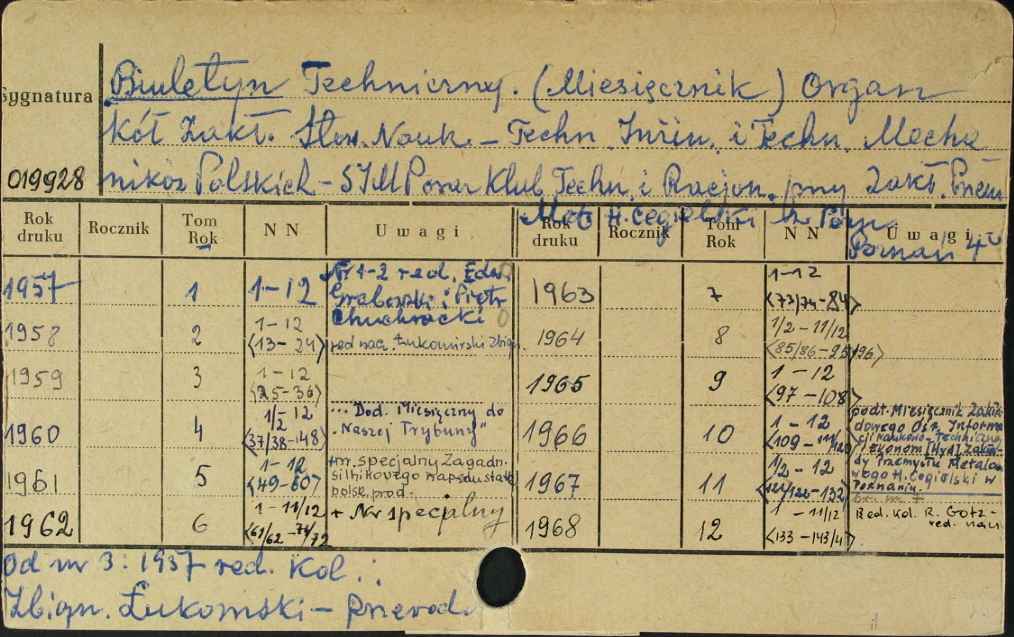 Sygnatura
Biuletyn Techniczny. (Miesięcznik) Organ
Kół Zakł. Stow. Nauk. - Techn Inżin. i Techn. Mecha
019928
ników Polskich - SIM Pozn Klub Techn. i Racjon. przy Zakł. Przem.
Met. H. Cegielski w Pozn.
Poznań 4°
Rok druku Rocznik Tom Rok NN Uwagi Rok druku Rocznik Tom Rok NN Uwagi
1957 1 1-12 Nr 1-2 red. Edw.
Grabowski i Piotr
Chuchracki
1963 7 1-12
<73/74-84>
1958 2 1-12
<13-24> red nacz. Łukomski Zbign.
1964 8 1/2-11/12
<85/86-95/96>
1959 3 1-12
<25-36>
1965 9 1-12
<97-108>
1960 4 1/2-12
<37/38-148> ... Dod. Miesięczny do
"Naszej Trybuny"
1966 10 1-12
<109-111/120>
podt. Miesięcznik Zakła-
dowego Ośr. Informa
cji Naukowo-Techniczn
i Ekonom [Hyd] Zakła-
dy Przemysłu Metalo
wego H. Cegielski w
Poznaniu.
1961 5 1-12
<49-60> + nr. specjalny Zagadn.
silnikowego napędu statk
polsk. prod.
1967 11 1/2-12
<121/122-132>
1962 6 1-11/12
<61/62-71/72 + Nr specjalny
1968 12 1-11/12
<133-143/4>
Red. Kol. R. Gotz-
red. nacz
Od nr 3: 1957 red. Kol.:
Zbign. Łukomski - przewodn.